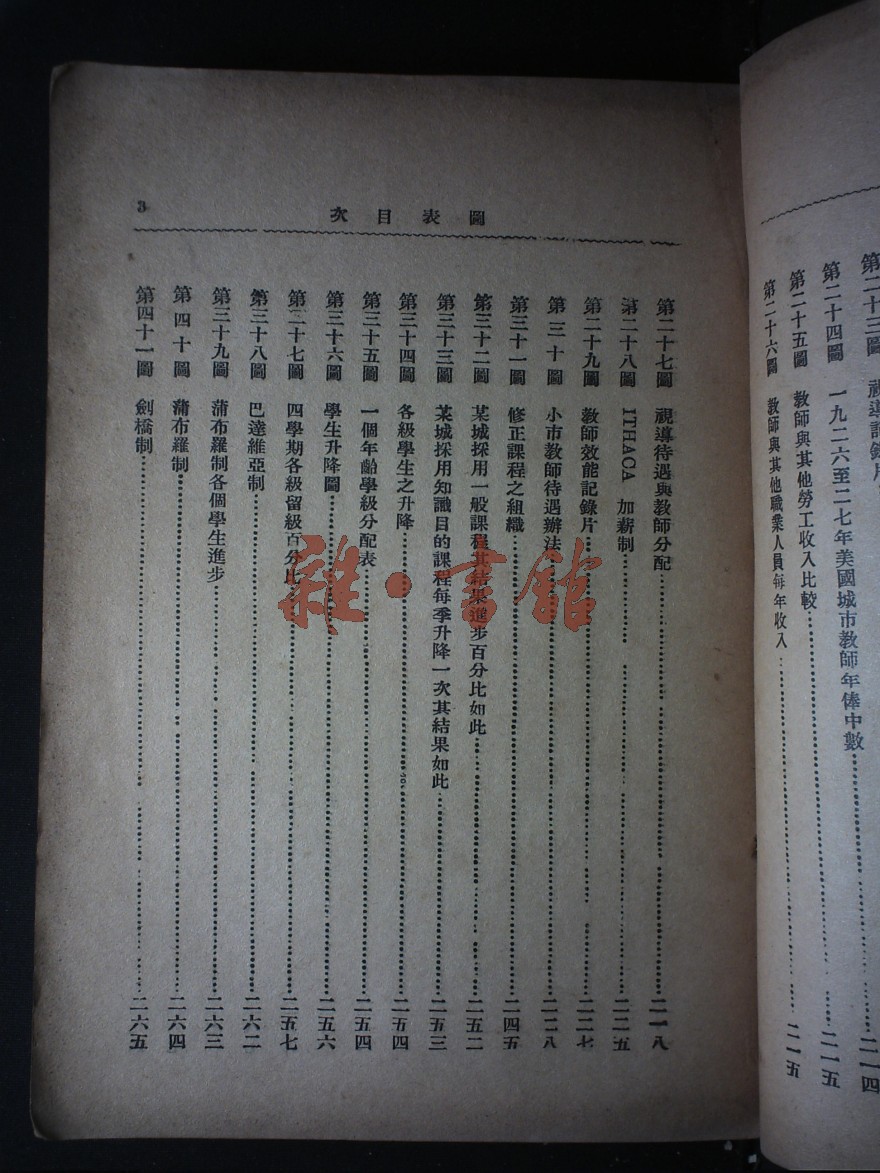 第二十三圖 視導記錄片二一四
第二十四圖 一九二六至二七年美國城市教師年俸中數二一五
第二十五圖 教師與其他勞工收入比較二一五
第二十六圖 教師與其他職業人員每年收入
圖表目次 3
第二十七圖 視導待遇與教師分配二一八
第二十八圖 ITHACA 加薪制二二五
第二十九圖 教師效能記錄片二二七
第三十圖 小市教師待遇辦法二二八
第三十一圖 修正課程之組織二四五
第三十二圖 某城採用一般課程其結果進步百分比如此二五二
第三十三圖 某城採用知識目的課程每季升降一次其結果如此二五三
第三十四圖 各級學生之升降二五四
第三十五圖 一個年齡學級分配表二五四
第三十六圖 學生升降圖二五六
第三十七圖 四學期各級留級百分比二五七
第三十八圖 巴達維亞制二六二
第三十九圖 蒲布羅制各個學生進步二六三
第四十圖 蒲布羅制二六四
第四十一圖 劍橋制二六五
雜·書館